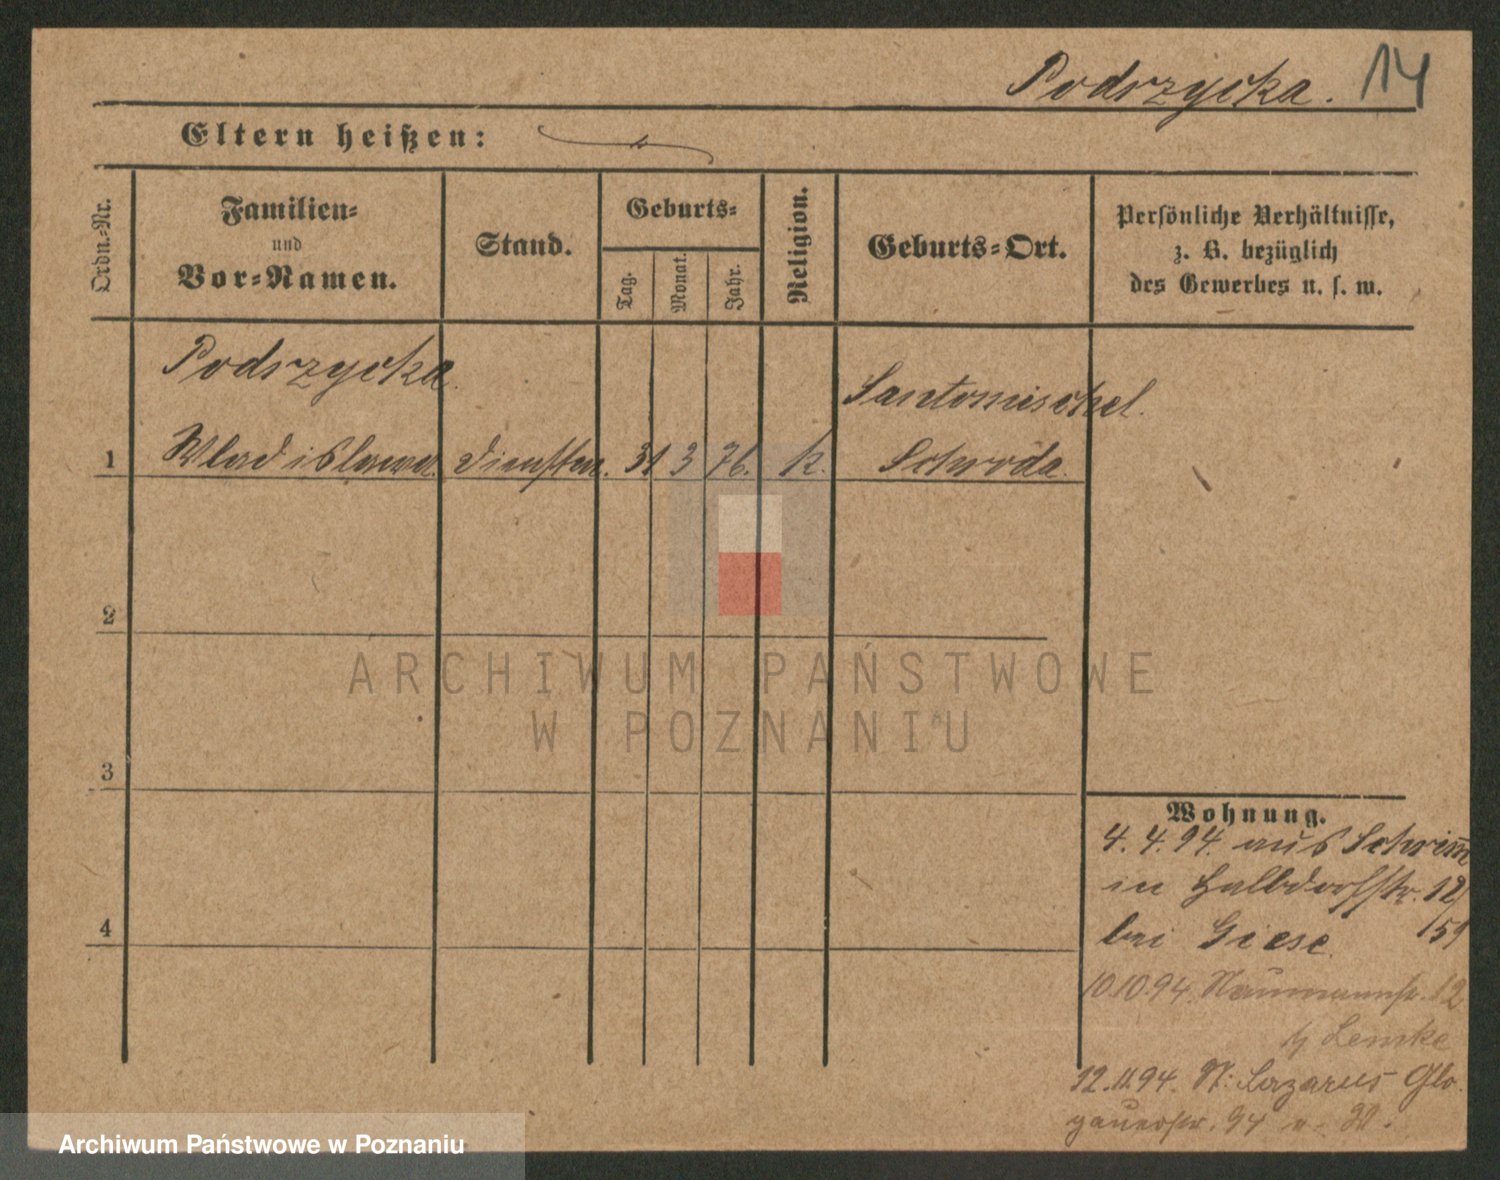 Podrzycka. 14
Eltern heißen:
Ordn.-Nr.
Familien-
und
Vor-Namen.
Stand.
Geburts-
Tag.
Monat.
Jahr.
Religion.
Geburts-Ort.
Persönliche Verhältnisse,
z. B. bezüglich
des Gewerbes u. s. w.
Podrzycka.
Santomischel.
1 Wladislawa. 31 3 76. k. Schroda.
2
3
4
Wohnung.
4.4.94. aus Schrimm
in Halbdorfstr. 12/
bei Giese. 151
10.10.94. Naumannstr. 12
Lemke
12.11.94. St: Lazarus Glo-
gauerstr. 94
ARCHIWUM PAŃSTWOWE
W POZNANIU
Archiwum Państwowe w Poznaniu